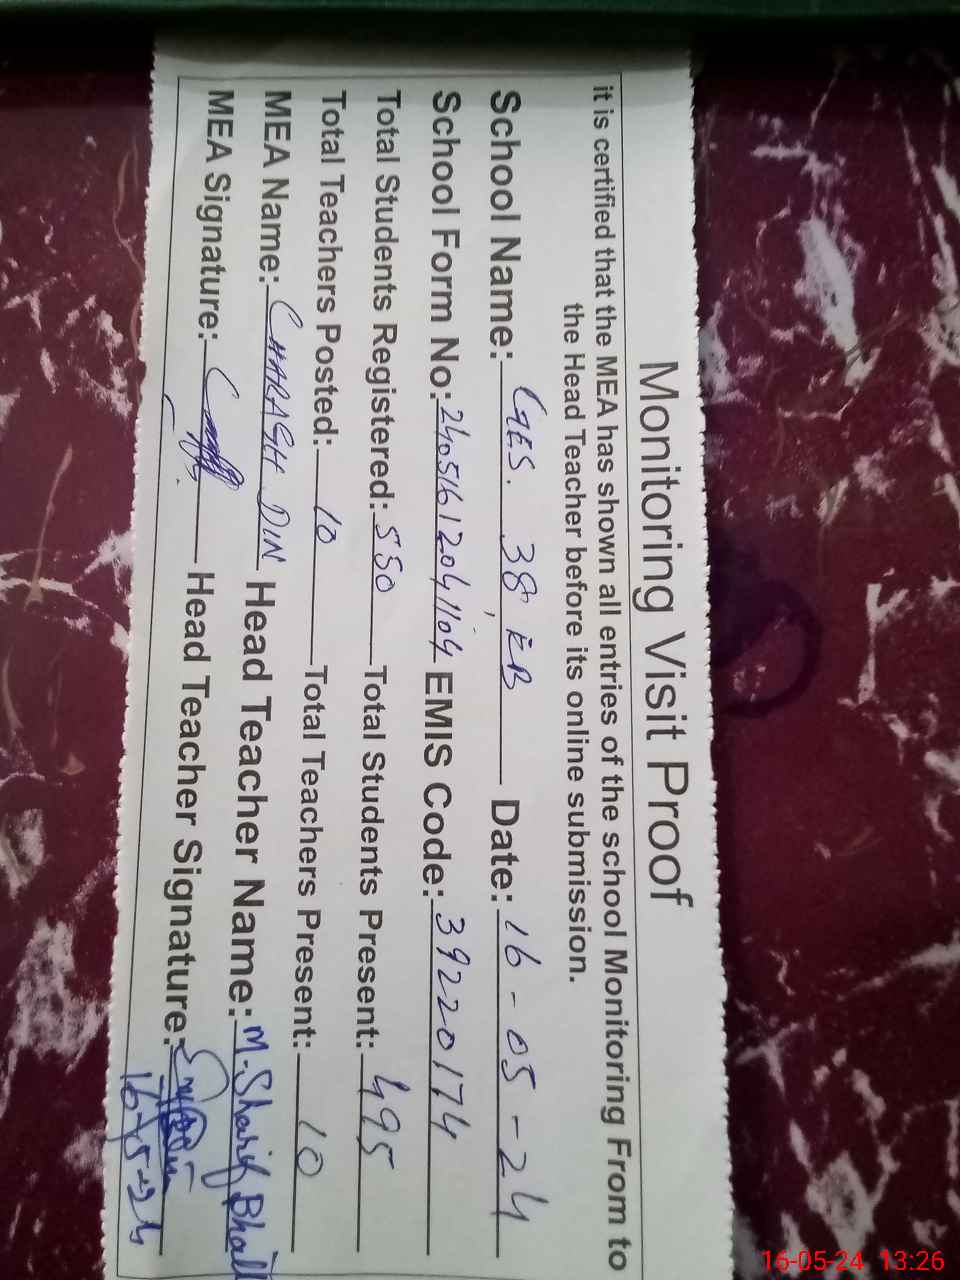 Monitoring Visit Proof
it is certified that the MEA has shown all entries of the school Monitoring From to
the Head Teacher before its online submission.
School Name: GES. 38, EB Date: 16-05-24
School Form No: 24051612041104 EMIS Code: 39220174
Total Students Registered: 550 Total Students Present: 495
Total Teachers Posted: 10 Total Teachers Present: 10
MEA Name: CHARAGH DIN Head Teacher Name: M. Sharif Bhatt
MEA Signature: Head Teacher Signature:
16-5-24
16-05-24 13:26